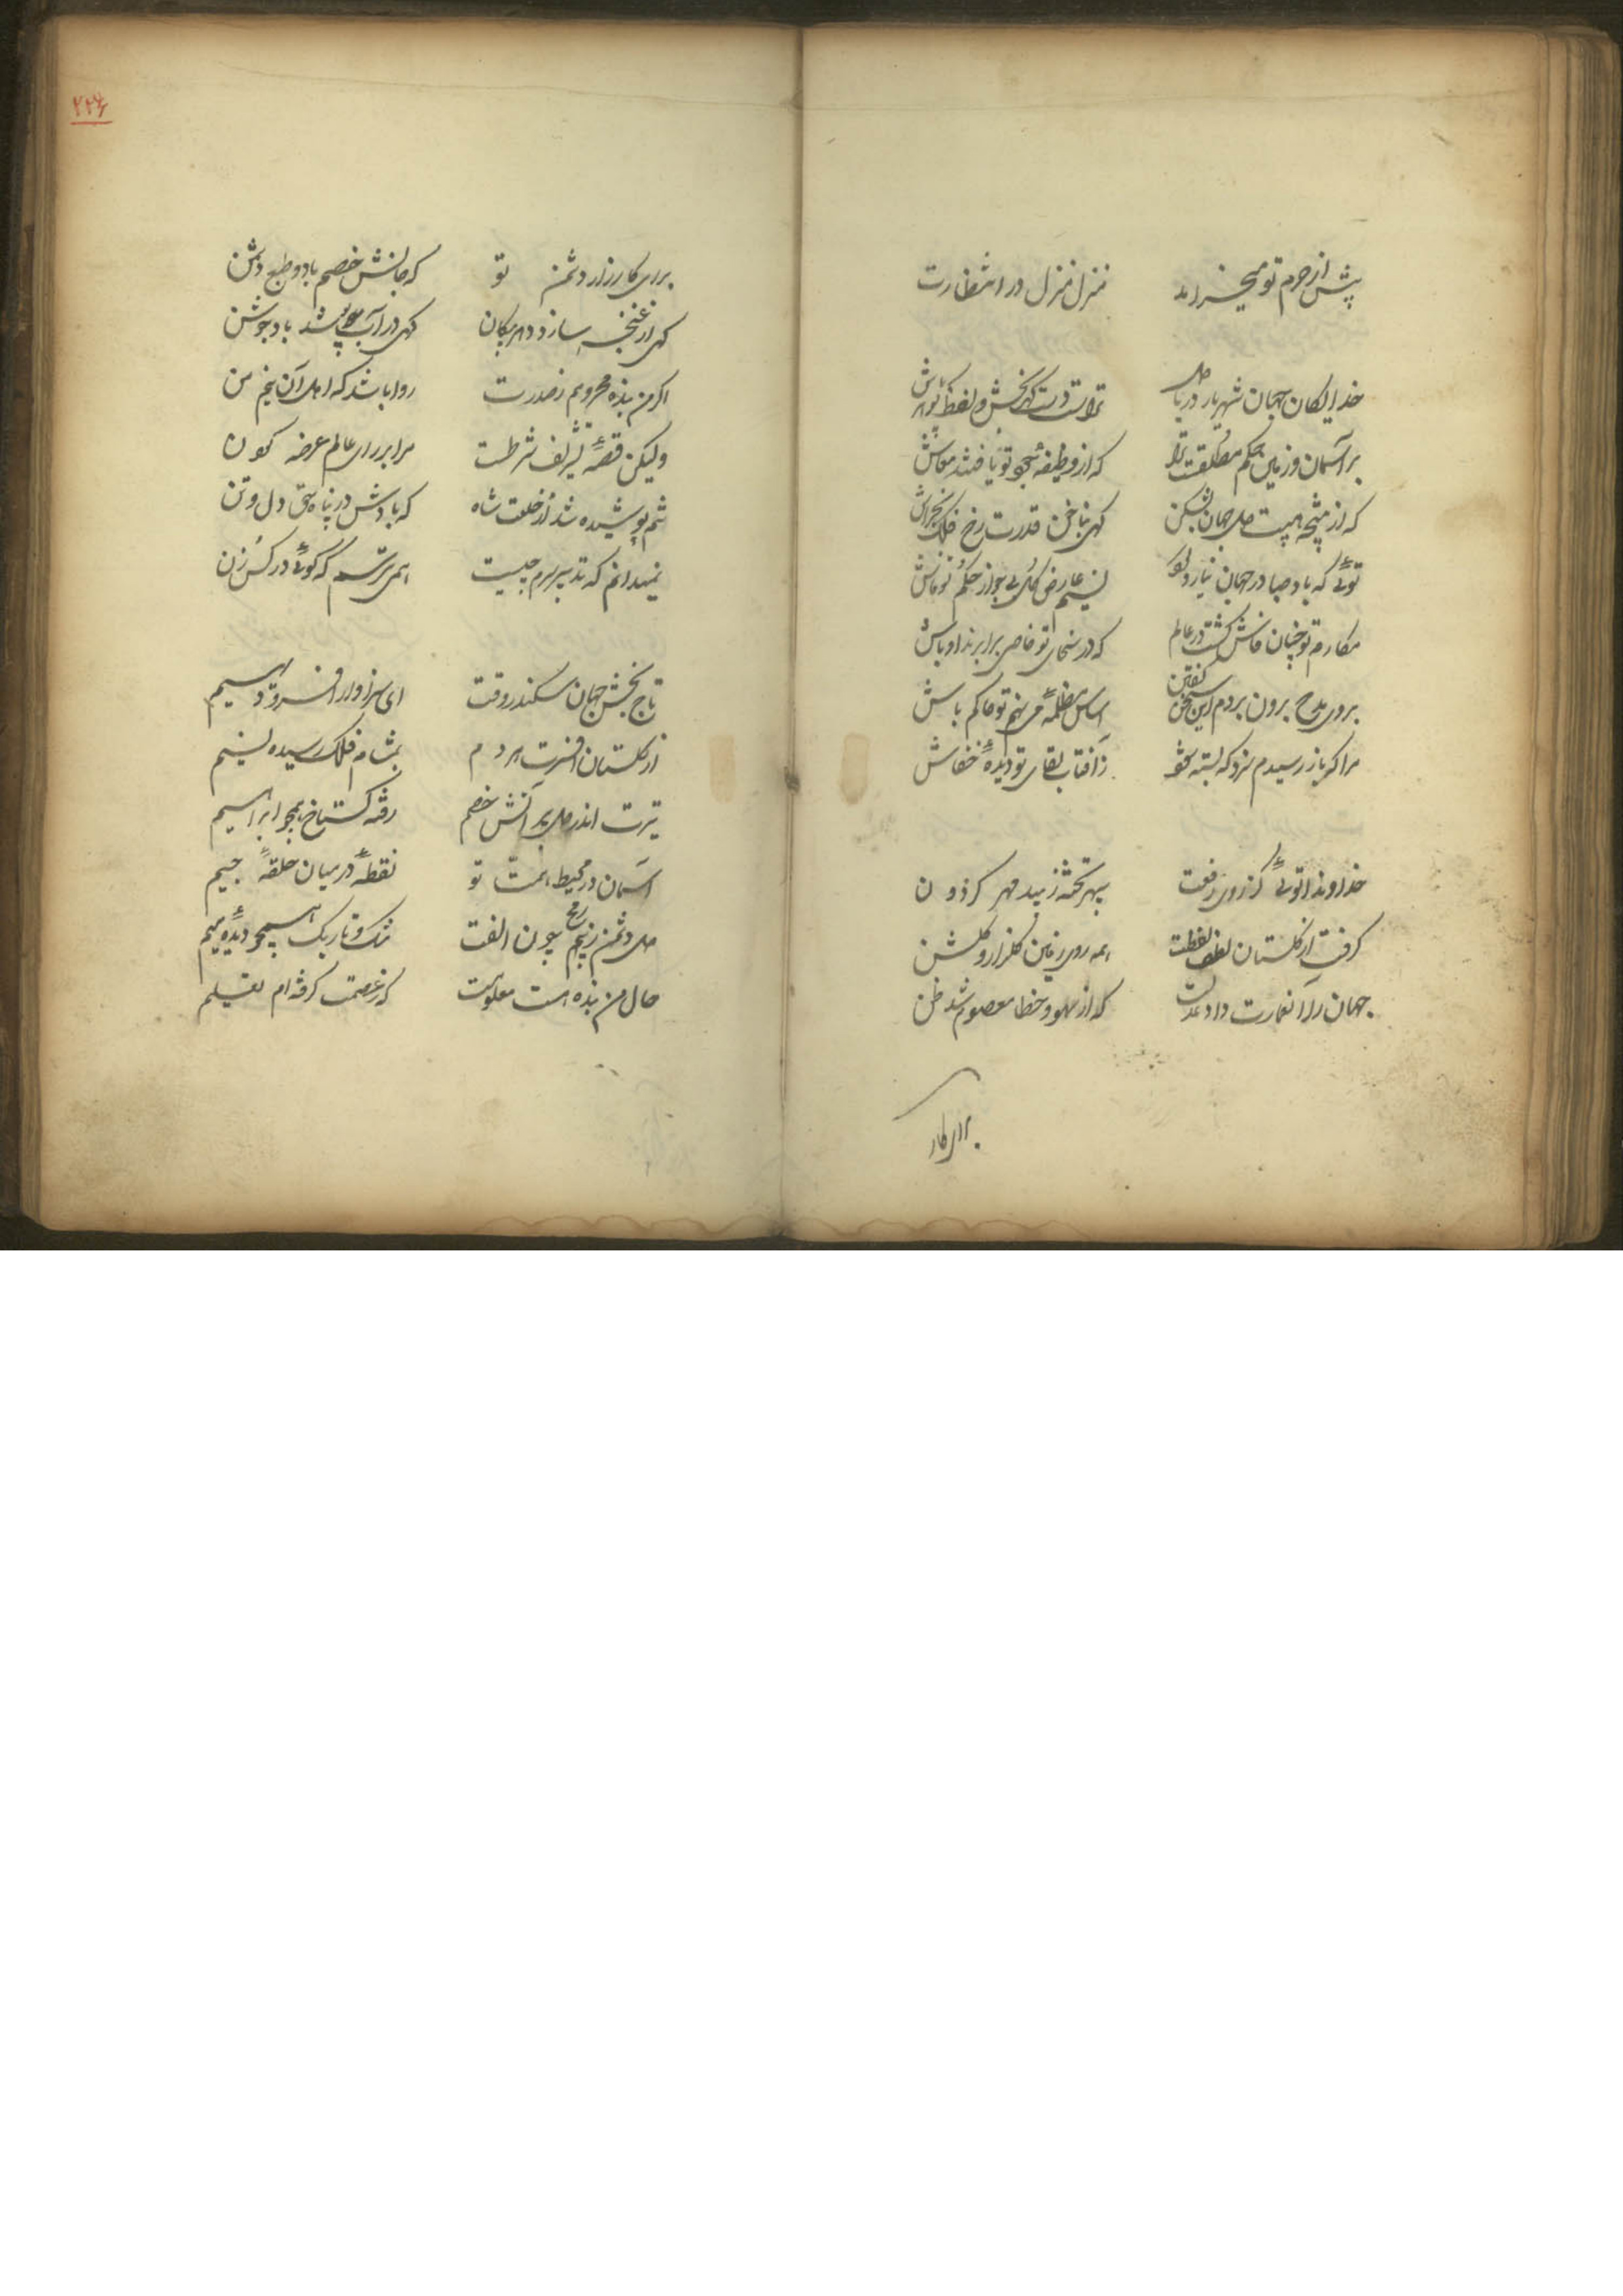 پیش از حرم تو میخرامد منزل منزل در انتظارت
خدایگان جهان شهریار دریا دل تراست دست گهربخش و لفظ گوهر پاش
بر آسمان و زمین حکم مطلقست ترا که از وظیفهٔ جود تو یافتند معاش
که از نتیجهٔ هیبت دل جهان بشکن گهی بناخن قدرت رخ فلک بخراش
توئی که باد صبا در جهان نیارد کرد نسیم عارض گل بی جواز حکم تو فاش
مکارم تو چنان فاش گشت در عالم که در سخای تو خاص برابرند اوباش
بروی مدح برون بردم این سخن گفتن اساس مظلمه می نهم تو حاکم باش
مرا که باز رسیدم سزد که بسته شود ز آفتاب لقای تو دیدهٔ خفاش
خداوندا توئی کز روی رفعت سپهر تحته زیبد مهر گردون
گرفت از گلستان لطف لفظت همه روی زمین گلزار و گلشن
جهان را آن عمارت داد عدلت که از سهو و خطا معصوم شد ظن
برای کار
۲۲۶
برای کارزار دشمن تو که جانش خصم باد و طبع دشمن
گهی از غنچه سازد دهر پیکان گهی در آب پوشد باد جوشن
اگر من بنده محرومم ز صدرت روا باشد که اهل آن نیم من
ولیکن قصهٔ تشریف شرطست مرا بر رای عالم عرضه کردن
تنم پوشیده شد از خلعت شاه که بادش در پناه حق دل و تن
نمیدانم که تدبیر سرم چیست همی ترسم که گوئی در کس زن
تاج بخش جهان سکندر وقت ای سزاوار افسر و دیهیم
از گلستان افسرت هر دم بمشام فلک رسیده نسیم
تیرت اندر دل پر آتش خصم رفته گستاخ همچو ابراهیم
آسمان در محیط همت تو نقطهٔ در میان حلقهٔ جیم
دل دشمن ز رمح چون الفت تنگ و تاریک همچو دیدهٔ میم
حال من بنده است معلومت که ز خصمت گرفته ام